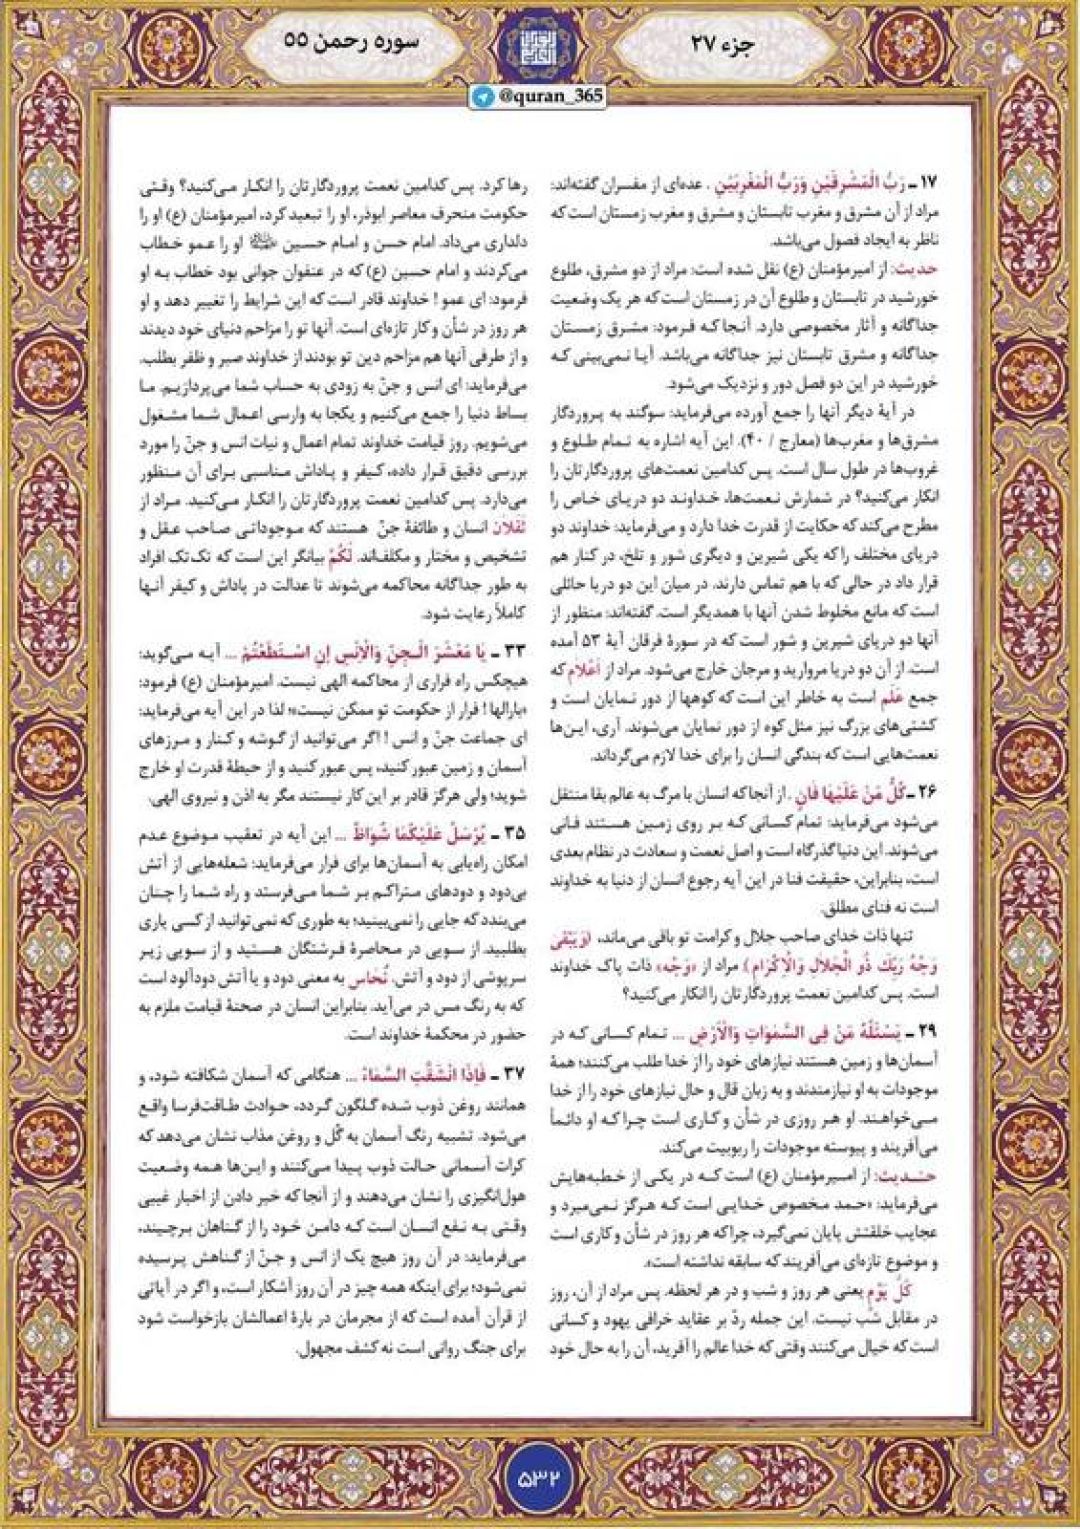 جزء ۲۷
سوره رحمن ۵۵
@quran_365
۱۷ ـ رَبُّ الْمَشْرِقَيْنِ وَرَبُّ الْمَغْرِبَيْنِ . عده‌ای از مفسران گفته‌اند:
مراد از آن مشرق و مغرب تابستان و مشرق و مغرب زمستان است که
ناظر به ایجاد فصول می‌باشد.
حدیث: از امیرمؤمنان (ع) نقل شده است: مراد از دو مشرق، طلوع
خورشید در تابستان و طلوع آن در زمستان است که هر یک وضعیت
جداگانه و آثار مخصوصی دارد. آنجا که فرمود: مشرق زمستان
جداگانه و مشرق تابستان نیز جداگانه می‌باشد. آیا نمی‌بینی که
خورشید در این دو فصل دور و نزدیک می‌شود.
در آیهٔ دیگر آنها را جمع آورده می‌فرماید: سوگند به پروردگار
مشرق‌ها و مغرب‌ها (معارج / ۴۰). این آیه اشاره به تمام طلوع و
غروب‌ها در طول سال است. پس کدامین نعمت‌های پروردگارتان را
انکار می‌کنید؟ در شمارش نعمت‌ها، خداوند دو دریای خاص را
مطرح می‌کند که حکایت از قدرت خدا دارد و می‌فرماید: خداوند دو
دریای مختلف را که یکی شیرین و دیگری شور و تلخ، در کنار هم
قرار داد در حالی که با هم تماس دارند. در میان این دو دریا حائلی
است که مانع مخلوط شدن آنها با همدیگر است. گفته‌اند: منظور از
آنها دو دریای شیرین و شور است که در سورهٔ فرقان آیهٔ ۵۳ آمده
است. از آن دو دریا مروارید و مرجان خارج می‌شود. مراد از أعْلام که
جمع عَلَم است به خاطر این است که کوهها از دور نمایان است و
کشتی‌های بزرگ نیز مثل کوه از دور نمایان می‌شوند. آری، این‌ها
نعمت‌هایی است که بندگی انسان را برای خدا لازم می‌گرداند.
۲۶ ـ كُلُّ مَنْ عَلَيْهَا فَانٍ . از آنجا که انسان با مرگ به عالم بقا منتقل
می‌شود می‌فرماید: تمام کسانی که بر روی زمین هستند فانی
می‌شوند. این دنیا گذرگاه است و اصل نعمت و سعادت در نظام بعدی
است، بنابراین، حقیقت فنا در این آیه رجوع انسان از دنیا به خداوند
است نه فنای مطلق.
تنها ذات خدای صاحب جلال و کرامت تو باقی می‌ماند، (وَيَبْقى
وَجْهُ رَبِّكَ ذُو الْجَلَالِ وَالْاِكْرَامِ) مراد از «وَجْه» ذات پاک خداوند
است. پس کدامین نعمت پروردگارتان را انکار می‌کنید؟
۲۹ ـ يَسْئَلُهُ مَنْ فِى السَّمٰوَاتِ وَالْاَرْضِ ... تمام کسانی که در
آسمان‌ها و زمین هستند نیازهای خود را از خدا طلب می‌کنند؛ همهٔ
موجودات به او نیازمندند و به زبان قال و حال نیازهای خود را از خدا
می‌خواهند. او هر روزی در شأن و کاری است چرا که او دائماً
می‌آفریند و پیوسته موجودات را ربوبیت می‌کند.
حدیث: از امیرمؤمنان (ع) است که در یکی از خطبه‌هایش
می‌فرماید: «حمد مخصوص خدایی است که هرگز نمی‌میرد و
عجایب خلقتش پایان نمی‌گیرد، چرا که هر روز در شأن و کاری است
و موضوع تازه‌ای می‌آفریند که سابقه نداشته است».
كُلَّ يَوْمٍ یعنی هر روز و شب و در هر لحظه. پس مراد از آن، روز
در مقابل شب نیست. این جمله ردّ بر عقاید خرافی یهود و کسانی
است که خیال می‌کنند وقتی که خدا عالم را آفرید، آن را به حال خود
رها کرد. پس کدامین نعمت پروردگارتان را انکار می‌کنید؟ وقتی
حکومت منحرف معاصر ابوذر، او را تبعید کرد، امیرمؤمنان (ع) او را
دلداری می‌داد. امام حسن و امام حسین او را عمو خطاب
می‌کردند و امام حسین (ع) که در عنفوان جوانی بود خطاب به او
فرمود: ای عمو ! خداوند قادر است که این شرایط را تغییر دهد و او
هر روز در شأن و کار تازه‌ای است. آنها تو را مزاحم دنیای خود دیدند
و از طرفی آنها هم مزاحم دین تو بودند از خداوند صبر و ظفر بطلب.
می‌فرماید: ای انس و جنّ به زودی به حساب شما می‌پردازیم. ما
بساط دنیا را جمع می‌کنیم و یکجا به وارسی اعمال شما مشغول
می‌شویم. روز قیامت خداوند تمام اعمال و نیات انس و جنّ را مورد
بررسی دقیق قرار داده، کیفر و پاداش مناسبی برای آن منظور
می‌دارد. پس کدامین نعمت پروردگارتان را انکار می‌کنید. مراد از
ثَقَلان انسان و طائفهٔ جنّ هستند که موجوداتی صاحب عقل و
تشخیص و مختار و مکلف‌اند. لَكُمْ بیانگر این است که تک تک افراد
به طور جداگانه محاکمه می‌شوند تا عدالت در پاداش و کیفر آنها
کاملاً رعایت شود.
۳۳ ـ يَا مَعْشَرَ الْجِنِّ وَالْاِنْسِ اِنِ اسْتَطَعْتُمْ ... آیه می‌گوید:
هیچکس راه فراری از محاکمه الهی نیست. امیرمؤمنان (ع) فرمود:
«بارالها ! فرار از حکومت تو ممکن نیست»؛ لذا در این آیه می‌فرماید:
ای جماعت جنّ و انس ! اگر می‌توانید از گوشه و کنار و مرزهای
آسمان و زمین عبور کنید، پس عبور کنید و از حیطهٔ قدرت او خارج
شوید؛ ولی هرگز قادر بر این کار نیستند مگر به اذن و نیروی الهی.
۳۵ ـ يُرْسَلُ عَلَيْكُمَا شُوَاظٌ ... این آیه در تعقیب موضوع عدم
امکان راه‌یابی به آسمان‌ها برای فرار می‌فرماید: شعله‌هایی از آتش
بی‌دود و دودهای متراکم بر شما می‌فرستد و راه شما را چنان
می‌بندد که جایی را نمی‌بینید؛ به طوری که نمی‌توانید از کسی یاری
بطلبید. از سویی در محاصرهٔ فرشتگان هستید و از سویی زیر
سرپوشی از دود و آتش. نُحَاس به معنی دود و یا آتش دودآلود است
که به رنگ مس در می‌آید. بنابراین انسان در صحنهٔ قیامت ملزم به
حضور در محکمهٔ خداوند است.
۳۷ ـ فَاِذَا انْشَقَّتِ السَّمَاءُ ... هنگامی که آسمان شکافته شود، و
همانند روغن ذوب شده گلگون گردد، حوادث طاقت‌فرسا واقع
می‌شود. تشبیه رنگ آسمان به گُل و روغن مذاب نشان می‌دهد که
کرات آسمانی حالت ذوب پیدا می‌کنند و این‌ها همه وضعیت
هول‌انگیزی را نشان می‌دهند و از آنجا که خبر دادن از اخبار غیبی
وقتی به نفع انسان است که دامن خود را از گناهان برچیند،
می‌فرماید: در آن روز هیچ یک از انس و جنّ از گناهش پرسیده
نمی‌شود؛ برای اینکه همه چیز در آن روز آشکار است، و اگر در آیاتی
از قرآن آمده است که از مجرمان در بارهٔ اعمالشان بازخواست شود
برای جنگ روانی است نه کشف مجهول.
۵۳۲